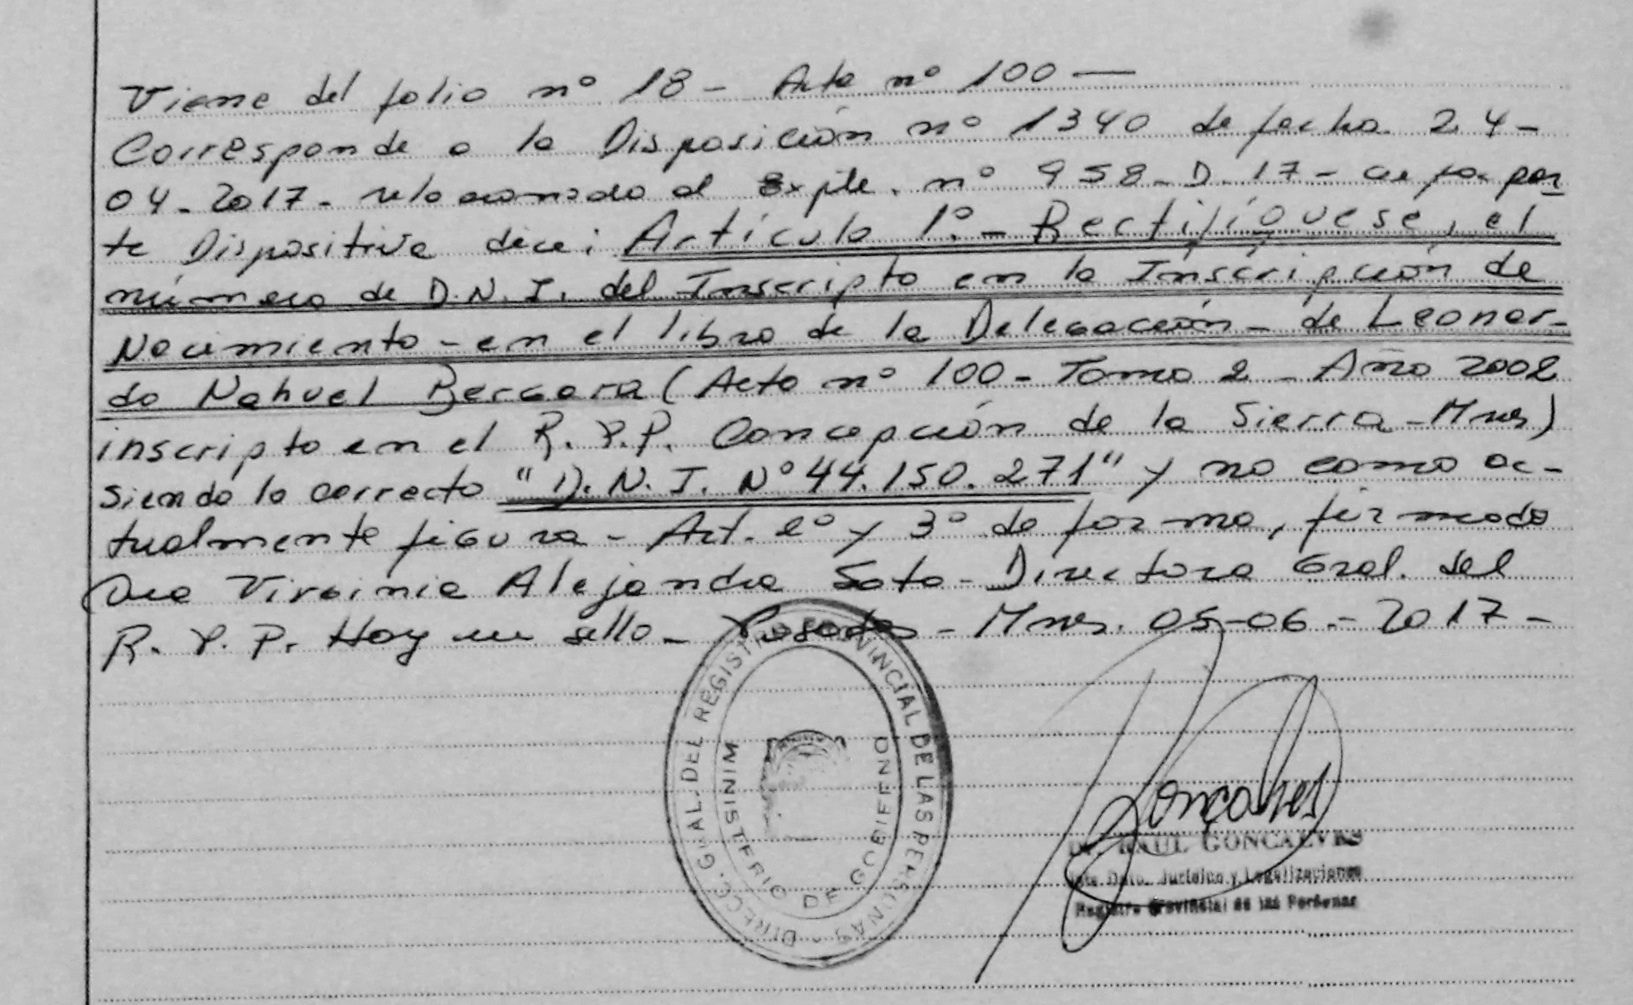 Viene del folio nº 18 - Acta nº 100 —
Corresponde a la Disposición nº 1340 de fecha 24-
04-2017- relacionado al Expte. nº 958-D-17- cuya par
te Dispositiva dice: Artículo 1º.- Rectifíquese, el
número de D.N.I. del Inscripto en la Inscripción de
Nacimiento - en el libro de la Delegación - de Leonar-
do Nahuel Bergara (Acta nº 100 - Tomo 2 - Año 2002
inscripto en el R.P.P. Concepción de la Sierra - Mnes)
siendo lo correcto "D.N.I. Nº 44.150.271" y no como ac-
tualmente figura - Art. 2º y 3º de forma, firmado
Dra Virginia Alejandra Soto - Directora Gral. del
R.P.P. Hoy un sello - Posadas - Mnes. 05-06-2017-
DIRECC. GRAL. DEL REGISTRO PROVINCIAL DE LAS PERSONAS
MINISTERIO DE GOBIERNO
Goncalves
Dr. RAUL GONCALVES
Jefe Dpto. Jurídico y Legalizaciones
Registro Provincial de las Personas